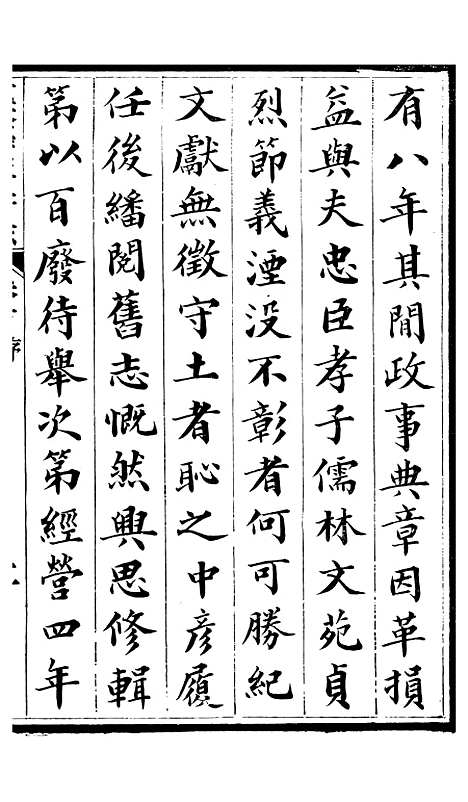 有八年其間政事典章因革損
益與夫忠臣孝子儒林文苑貞
烈節義湮没不彰者何可勝紀
文獻無徵守土者恥之中彥履
任後繙閱舊志慨然興思修輯
第以百廢待舉次第經營四年
序